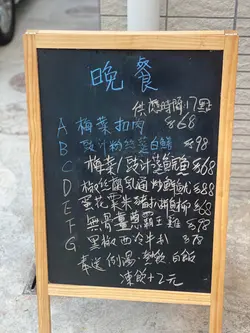 晚餐
供應時間17點
A 梅菜扣肉 $68
B 豉汁粉絲蒸白鱔 $98
C 梅菜/豉汁蒸鯇魚 $68
D 椒絲腐乳通菜 $88
E 蛋花粟米豬扒 $68
F 無骨薑蔥霸王雞 $98
G 黑椒西冷牛扒 $78
奉送 例湯 白飯
凍飲+2元